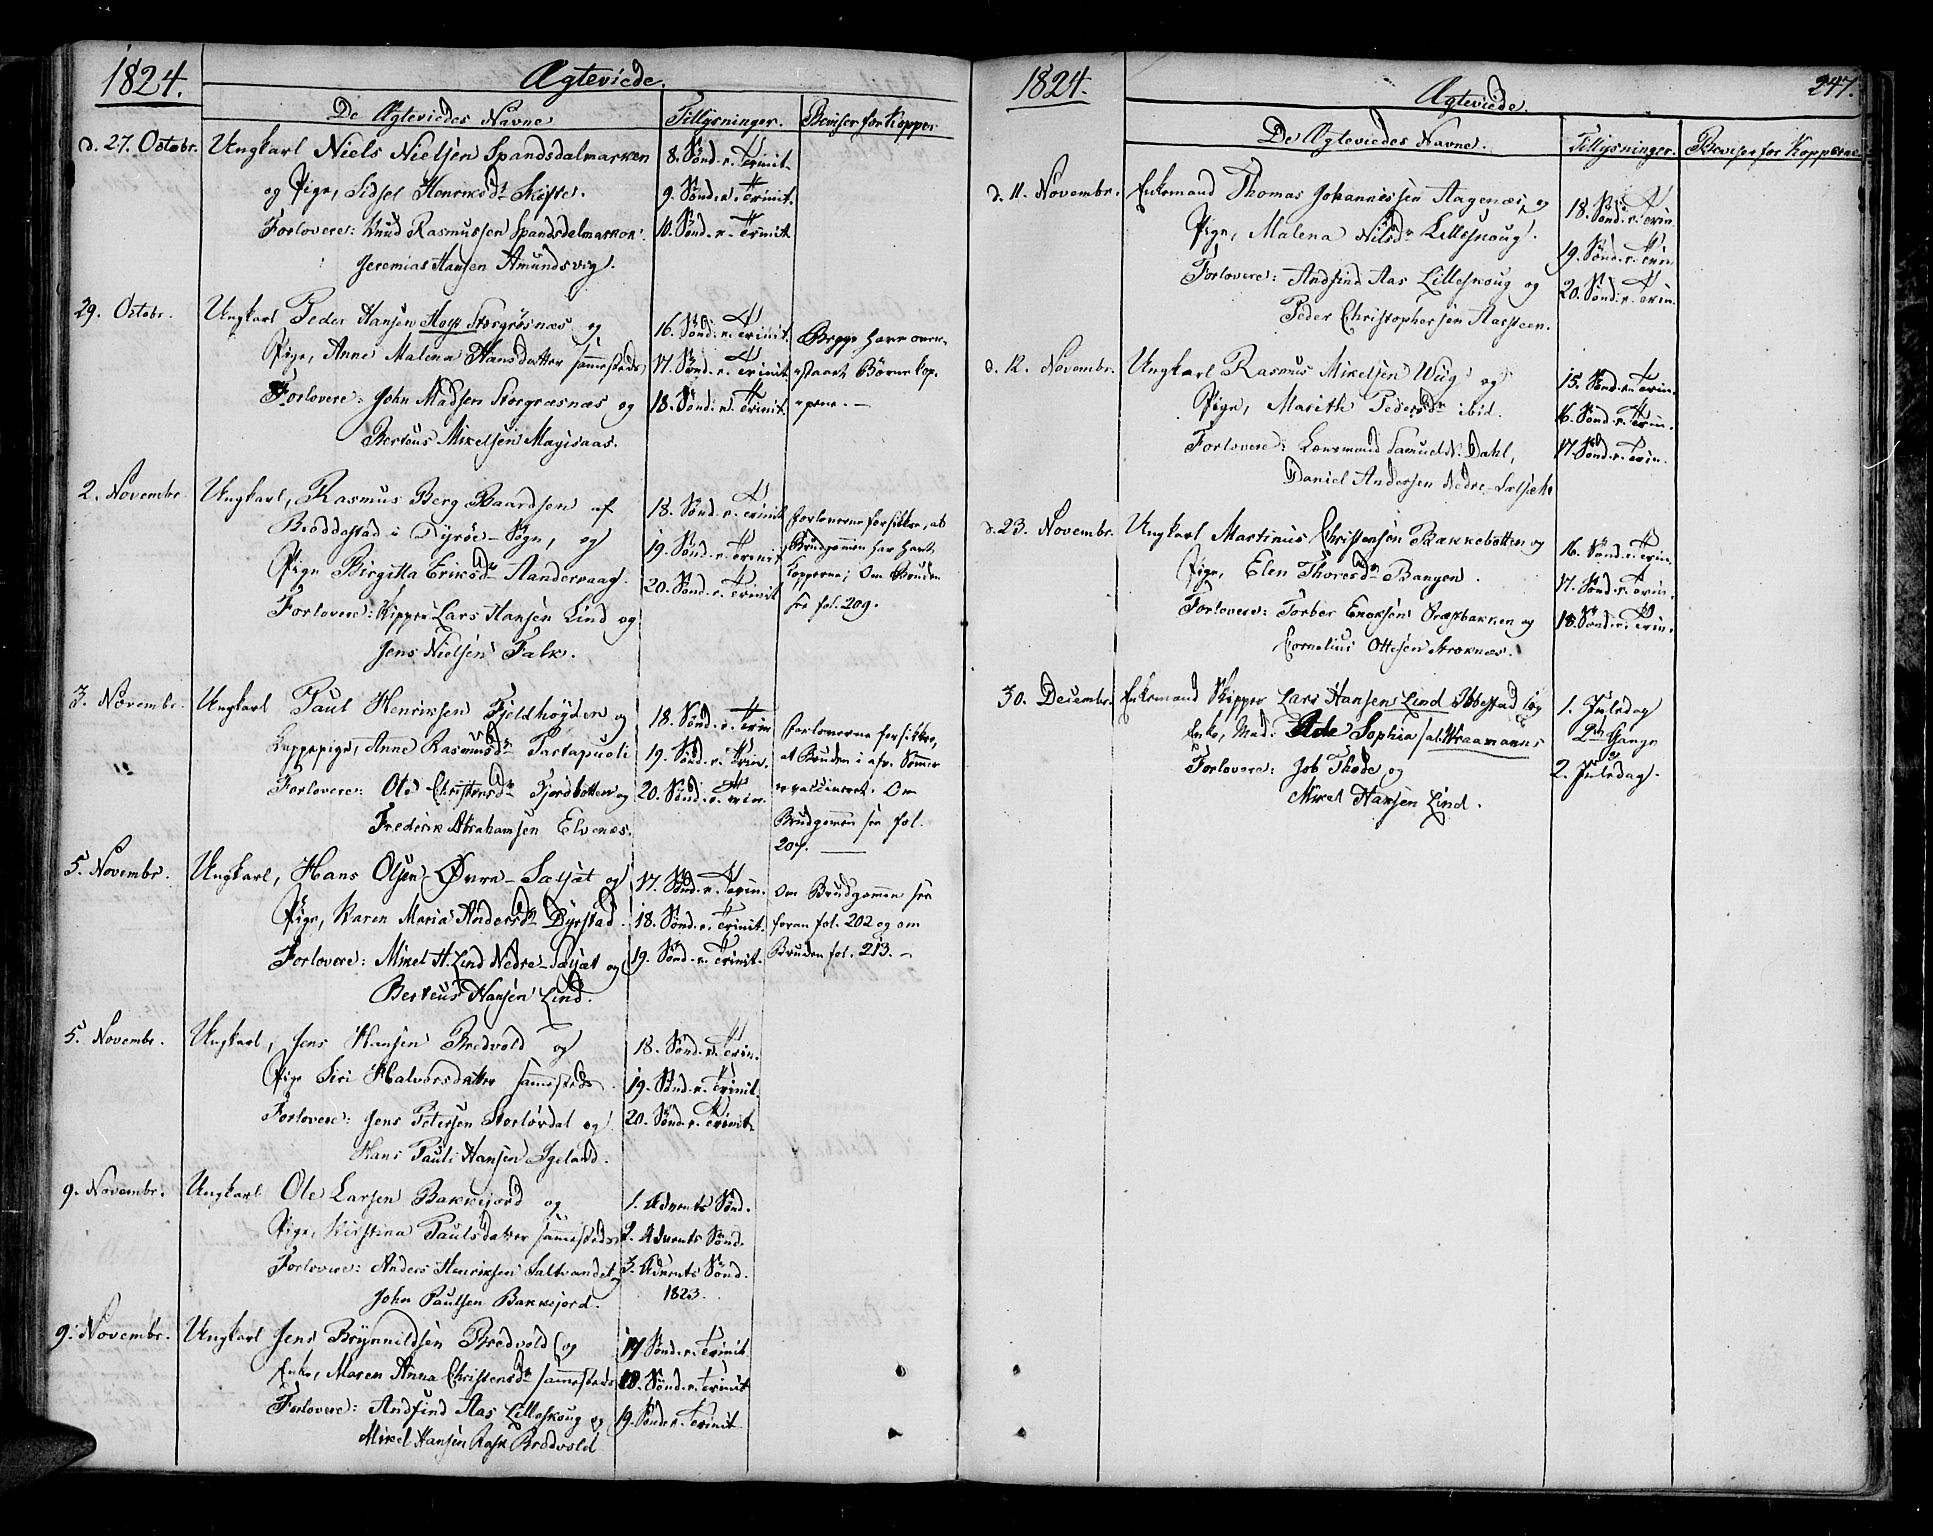 1824.
Ægteviede.
De Ægteviedes Navne
Tillysninger.
Beviser for Kopper
d. 27. Octobr.
Ungkarl Niels Nielsen Spandsdalmarken
og Pige, Sidsel Henriksdr
Forlovere: Knud Rasmussen Spandsdelmarken
Jeremias Hansen Amundsvig.
8. Sönd. e. Trinit.
9. Sönd. e. Trinit.
10. Sönd. e. Trinit.
29. Octobr.
Ungkarl Peder Hansen Storgrøsnæs og
Pige, Anne Malena Hansdatter sammesteds
Forlovere: John Madsen Storgræsnæs og
Berteus Mikelsen Magisaas.
16. Sönd. e. Trinit.
17. Sönd. e. Trinit.
18. Sönd. e. Trinit.
Begge have over-
staaet Börnekop-
perne. —
2. Novembr.
Ungkarl, Rasmus Berg Baardsen af
Bröddestad i Dyröe-Sogn, og
Pige Birgitta Eriksdr Aandervaag.
Forlovere: Skipper Lars Hansen Lind og
Jens Nielsen Falk.
18. Sönd. e. Trinit
19. Sönd. e. Trinit
20. Sönd. e. Trinit
Forloverne forsikkre, at
Brudgommen har havt
Kopperne; Om Bruden
see fol. 209.
3. Novembr.
Ungkarl Paul Henriksen Fjeldhöyden og
Lappepige, Anne Rasmusdr
Forlovere: Ole Christensdr Fjordbotten og
Frederik Abrahamsen Elvenæs.
18. Sönd. e. Trin
19. Sönd. e. Trin.
20. Sönd. e. Trin.
Forloverne forsikkre,
at Bruden i afv. Sommer
er vaccineret. Om
Brudgommen see fol.
207.
5. Novembr.
Ungkarl, Hans Olsen Øvre-Salsjæt og
Pige, Karen Maria Andersdr Dyrstad.
Forlovere: Mikel H. Lind Nedre-Salsjæt og
Berteus Hansen Lind.
17. Sönd. e. Trin.
18. Sönd. e. Trinit.
19. Sönd. e. Trinit.
Om Brudgommen see
foran fol. 202 og om
Bruden fol. 213. —
5. Novembr.
Ungkarl, Jens Hansen Bredvold og
Pige Siri Halvorsdatter sammesteds.
Forlovere: Jens Petersen Storlövdal og
Hans Pauli Hansen Igeland.
18. Sönd. e. Trin.
19. Sönd. e. Trinit.
20. Sönd. e. Trinit.
9. Novembr.
Ungkarl Ole Larsen Bakkejord og
Pige, Kirstina Paulsdatter sammesteds
Forlovere: Anders Henriksen Saltvandet og
John Paulsen Bakkejord.
1. Advents Sönd.
2. Advents Sönd.
3. Advents Sönd.
1823.
9. Novembr.
Ungkarl Jens Brynnildsen Bredvold og
Enke, Maren Anna Christensdr sammesteds
Forlovere: Andfind Aas Lilleskoug og
Mikel Hansen Rask Bredvold
17 Sönd. e. Trinit
18. Sönd. e. Trinit
19. Sönd. e. Trinit
1824.
Ægteviede.
247.
De Ægteviedes Navne.
Tillysninger.
Beviser for Kopperne
d. 11. Novembr.
Enkemand Thomas Johannessen Aagenæs og
Pige, Malena Nilsdr Lilleskoug.
Forlovere: Andfind Aas Lilleskoug og
Peder Christophersen Aarsteen.
18. Sönd. e. Trin
19. Sönd. e. Trin
20. Sönd. e. Trin.
d. 12. Novembr.
Ungkarl Rasmus Mikelsen Wiig og
Pige, Marith Pedersdr ibid.
Forlovere: Lensmand Samuel N. Dahl,
Daniel Andersen Nedre-Salsjæt
15. Sönd. e. Trin.
16. Sönd. e. Trin.
17. Sönd. e. Trin.
d. 23. Novembr.
Ungkarl Martinus Christensen Bækkebotten og
Pige, Elen Thoresdr Bangen.
Forlovere: Torber Enoksen og
Cornelius Ottesen
16. Sönd. e. Trin.
17. Sönd. e. Trin.
18. Sönd. e. Trin.
30. Decembr.
Enkemand Skipper Lars Hansen Lind Ibbestad og
Enke, Mad: Sophia sal: Kraamanns
Forlovere: Job Thode og
Mikel Hansen Lind.
1. Juledag
2den Gange
2. Juledag.